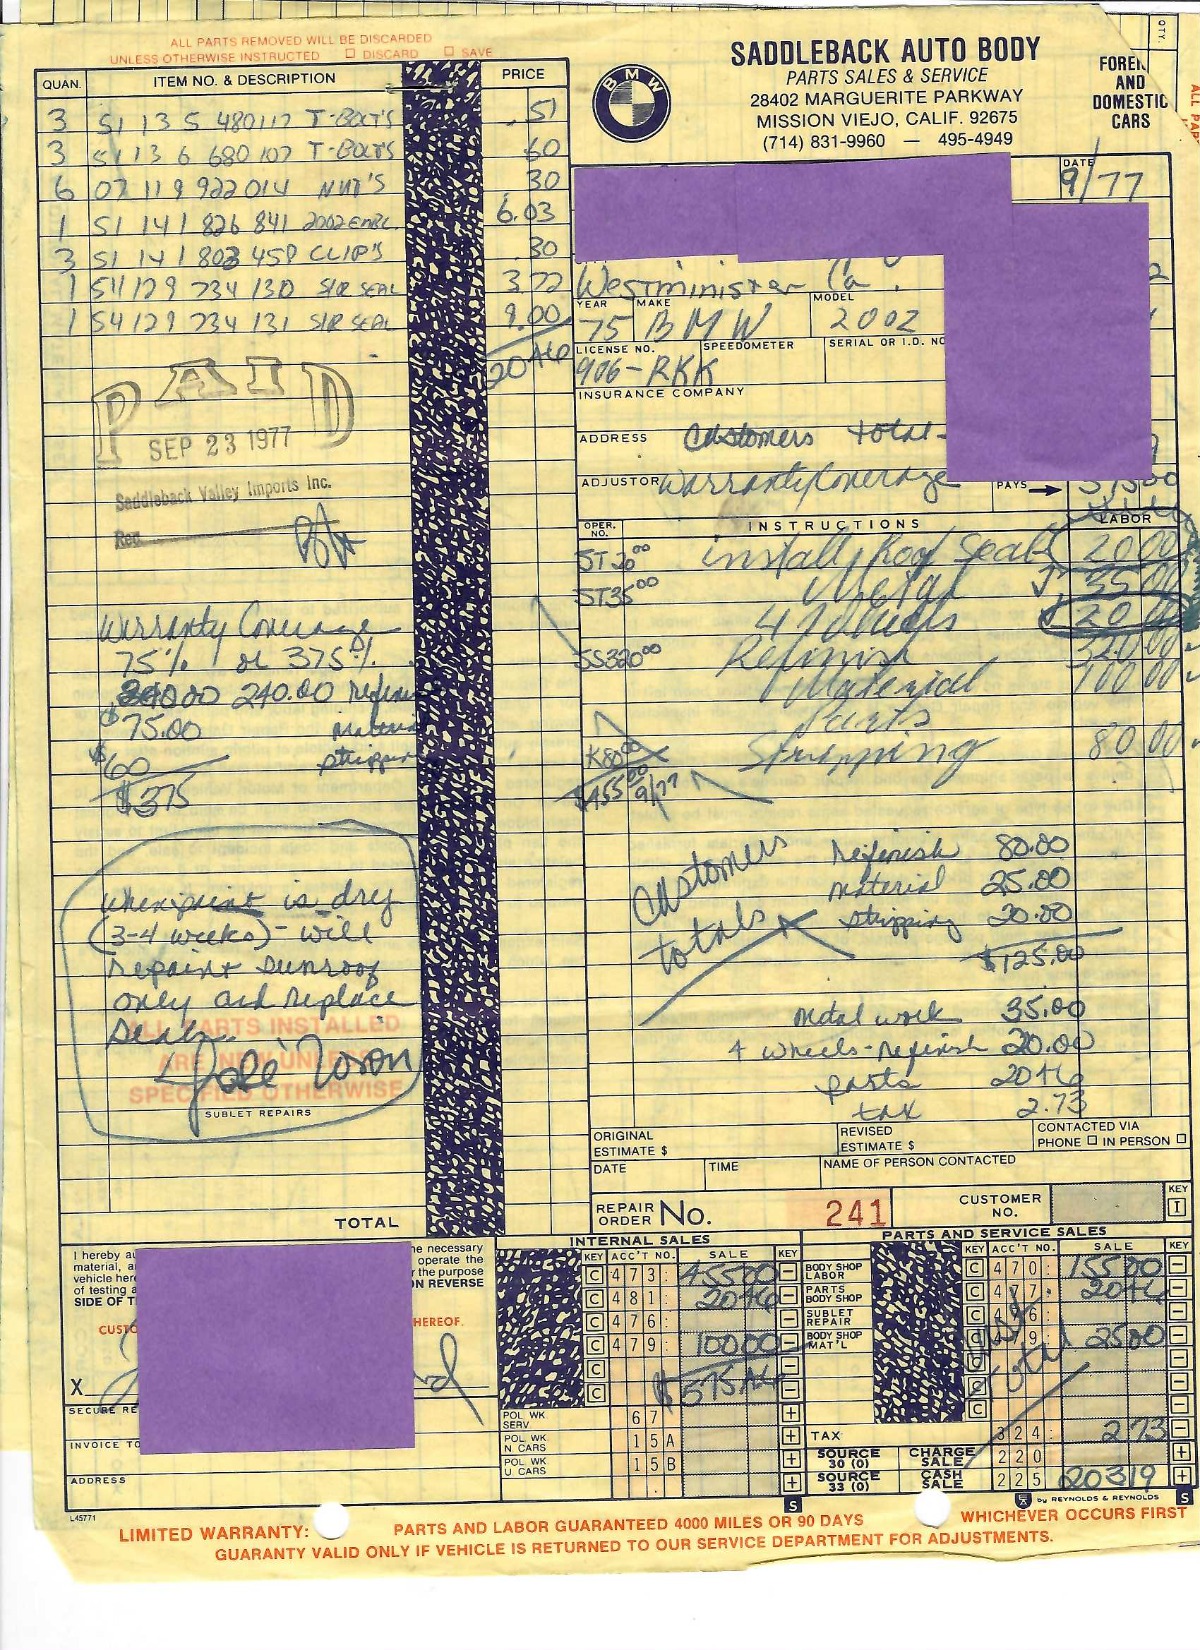 ALL PARTS REMOVED WILL BE DISCARDED
UNLESS OTHERWISE INSTRUCTED ☐ DISCARD ☐ SAVE
QUAN. ITEM NO. & DESCRIPTION PRICE
3 51 13 5 480117 T-BOLT'S .51
3 51 13 6 680 107 T-BOLT'S .60
6 07 119 922 014 NUT'S .30
1 51 141 826 841 2002 EMBL. 6.03
3 51 141 803 458 CLIP'S .30
1 54 129 734 130 S/R SEAL 3.72
1 54 129 734 131 S/R SEAL 9.00
2046
PAID
SEP 23 1977
Saddleback Valley Imports Inc.
Rec.
Warranty Coverage
75% or 375
240.00 refinish
$75.00 material
$60 stripping
$375
When paint is dry
(3-4 weeks) - will
repaint sunroof
only and replace
Seal.
ALL PARTS INSTALLED
ARE NEW UNLESS
SPECIFIED OTHERWISE
SUBLET REPAIRS
TOTAL
BMW
SADDLEBACK AUTO BODY
PARTS SALES & SERVICE
28402 MARGUERITE PARKWAY
MISSION VIEJO, CALIF. 92675
(714) 831-9960 — 495-4949
FOREIGN
AND
DOMESTIC
CARS
QTY.
DATE
9/77
Westminister Ca.
YEAR MAKE MODEL
75 BMW 2002
LICENSE NO. SPEEDOMETER SERIAL OR I.D. NO
906-RKK
INSURANCE COMPANY
ADDRESS Customers total-
ADJUSTOR Warranty Coverage PAYS
OPER. NO. INSTRUCTIONS LABOR
ST20.00 install Roof Seal 20.00
ST35.00 Metal 35.00
4 Wheels 20.00
SS320.00 Refinish 320.00
Material 100.00
Parts
K80.00 Stripping 80.00
$455.00
9/77
Customers totals
refinish 80.00
material 25.00
stripping 20.00
$125.00
metal work 35.00
4 wheels-Refinish 20.00
parts 2046
tax 2.73
ORIGINAL ESTIMATE $ REVISED ESTIMATE $ CONTACTED VIA
PHONE ☐ IN PERSON ☐
DATE TIME NAME OF PERSON CONTACTED
REPAIR ORDER No. 241 CUSTOMER NO. KEY I
I hereby au
material, a
vehicle here
of testing a
SIDE OF T
he necessary
operate the
r the purpose
ON REVERSE
CUSTO HEREOF.
X
SECURE RE
INVOICE TO
ADDRESS
INTERNAL SALES
KEY ACC'T NO. SALE KEY
C 473: 45500 −
C 481: 2046 −
C 476: −
C 479: 10000 −
C −
C $57546 −
POL WK SERV. 67 +
POL WK N CARS 15A +
POL WK U. CARS 15B +
S
PARTS AND SERVICE SALES
KEY ACC'T NO. SALE KEY
BODY SHOP LABOR C 470: 15500 −
PARTS BODY SHOP C 477. 2046 −
SUBLET REPAIR C 476: −
BODY SHOP MAT'L C 479: 2500 −
Cust total
TAX 324: 273 −
SOURCE 30 (0) CHARGE SALE 220 +
SOURCE 33 (0) CASH SALE 225 20319 +
by REYNOLDS & REYNOLDS S
L45771
LIMITED WARRANTY: PARTS AND LABOR GUARANTEED 4000 MILES OR 90 DAYS WHICHEVER OCCURS FIRST
GUARANTY VALID ONLY IF VEHICLE IS RETURNED TO OUR SERVICE DEPARTMENT FOR ADJUSTMENTS.